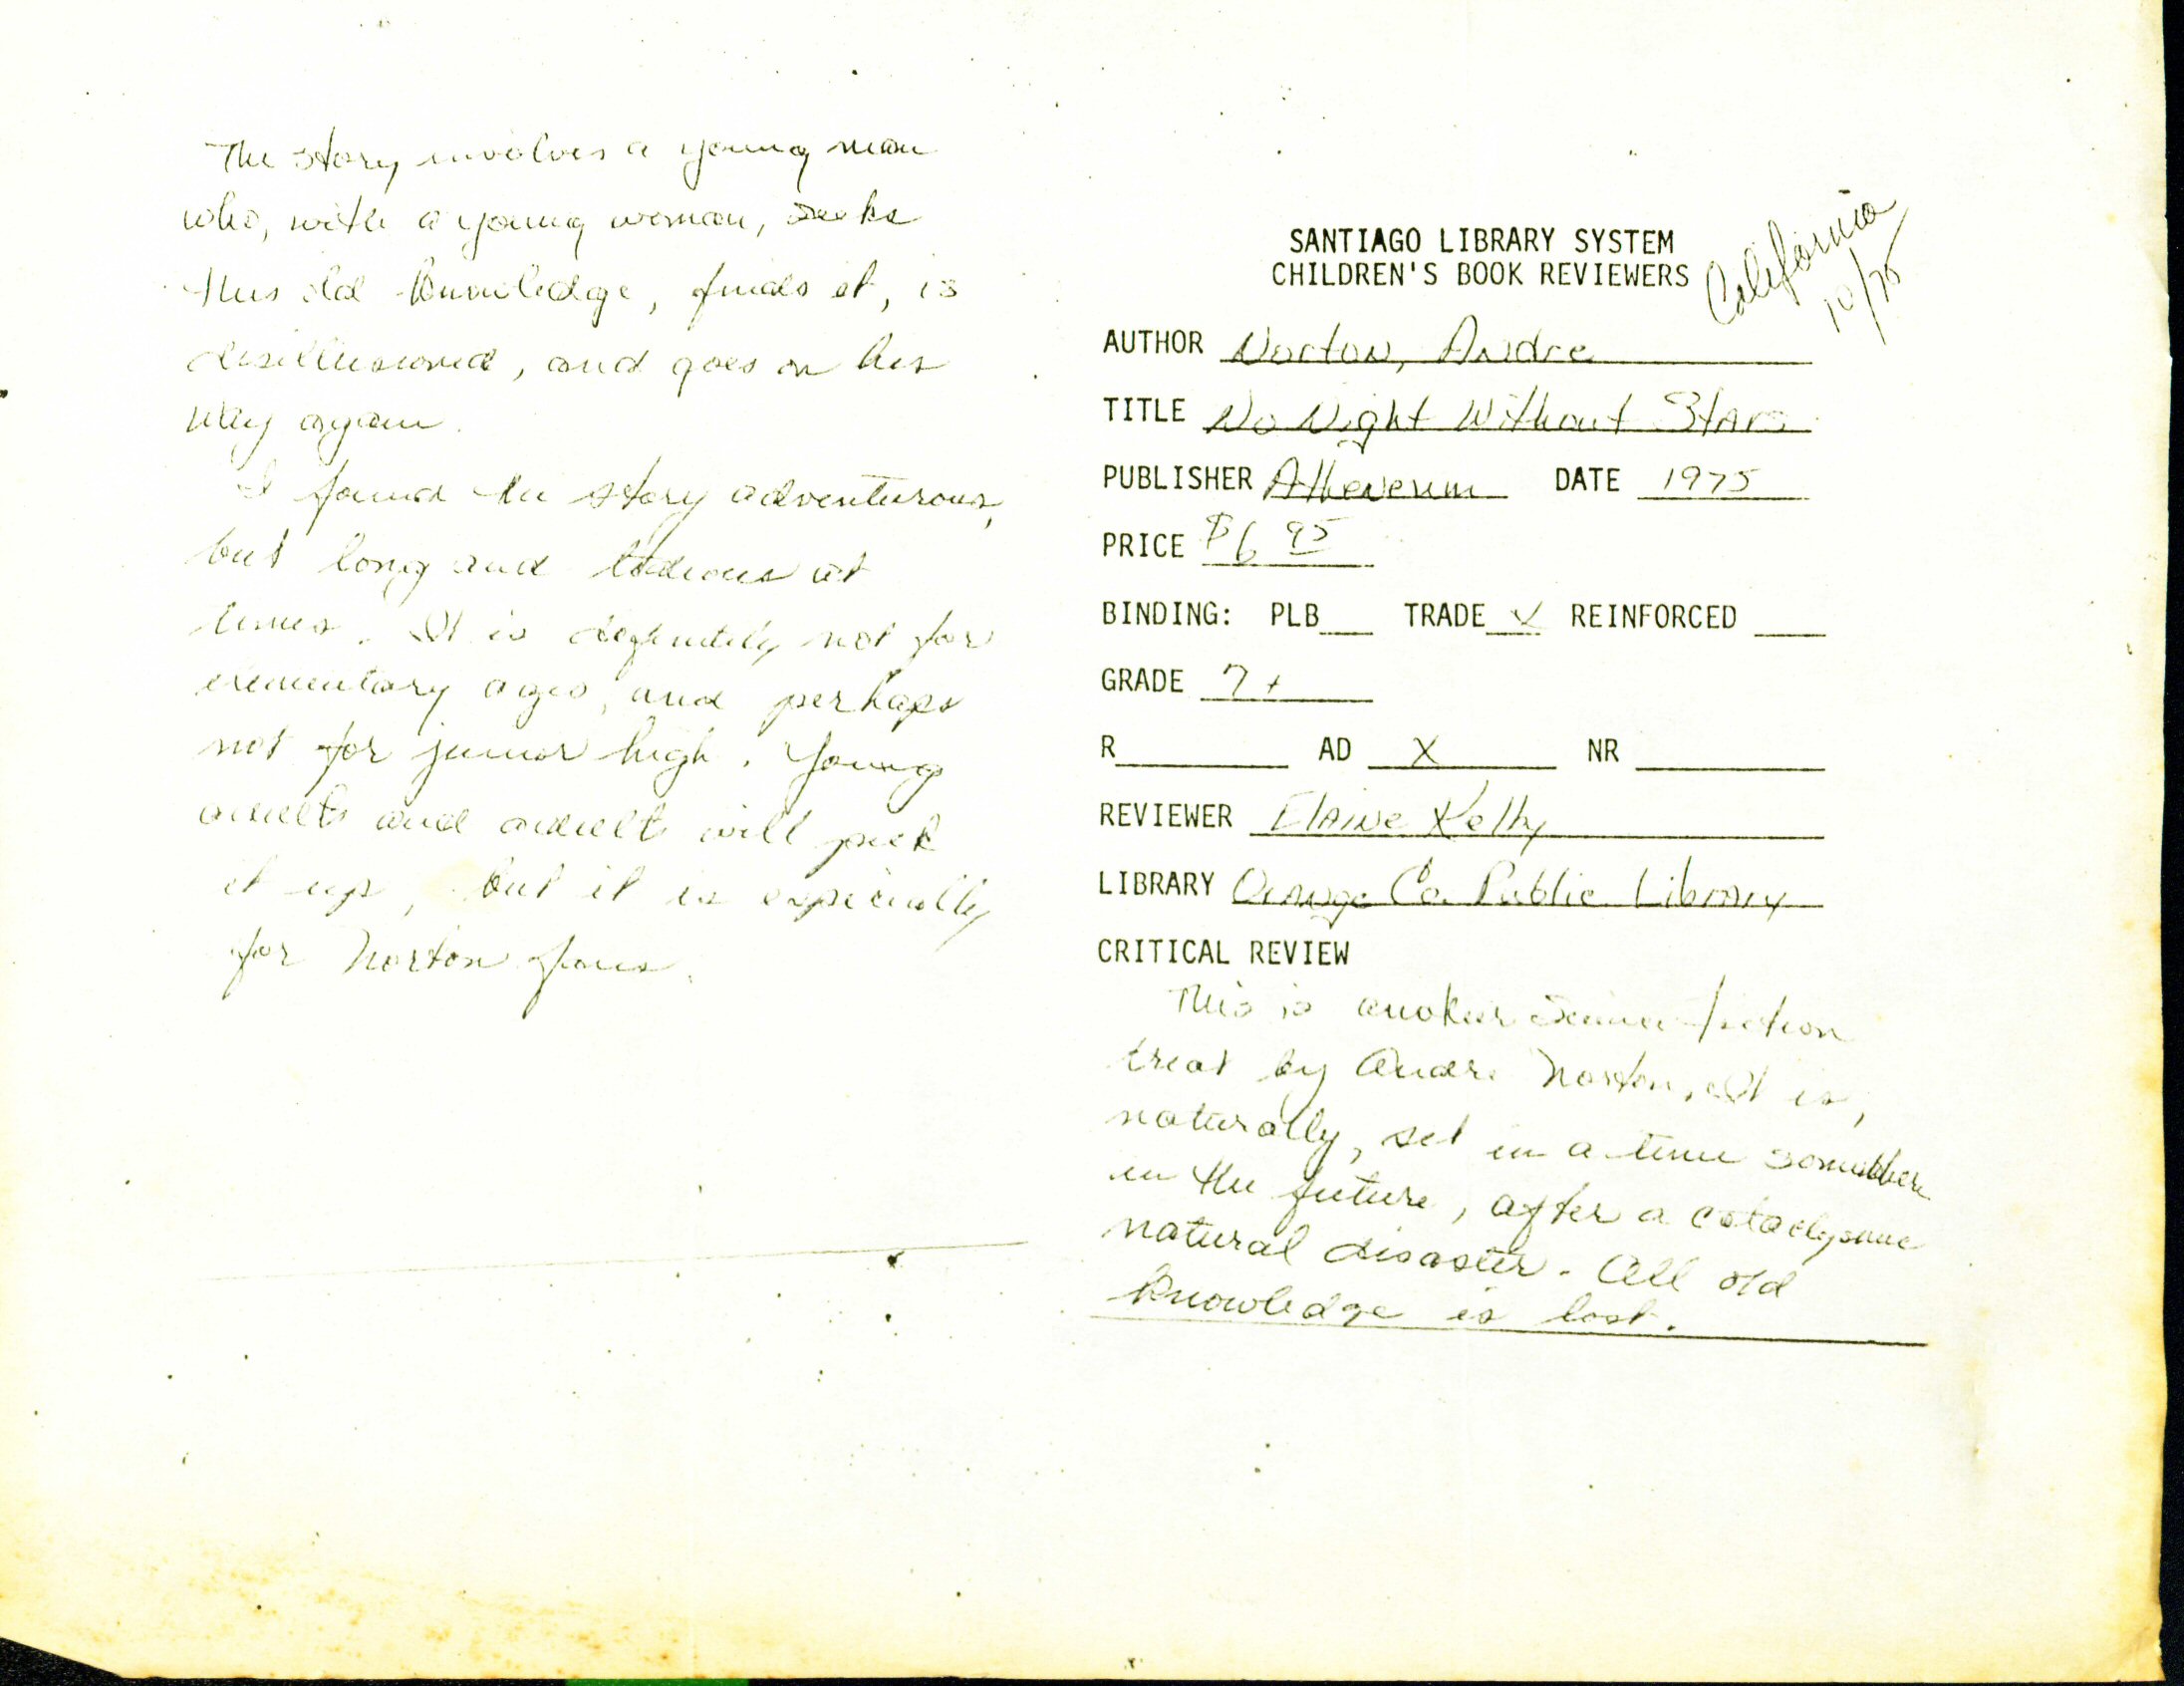 SANTIAGO LIBRARY SYSTEM
CHILDREN'S BOOK REVIEWERS
California
10/75
AUTHOR Norton, Andre
TITLE No Night Without Stars
PUBLISHER Atheneum DATE 1975
PRICE $6 95
BINDING: PLB___ TRADE X REINFORCED ____
GRADE 7+
R________ AD X NR ________
REVIEWER Elaine Kelly
LIBRARY Orange Co. Public Library
CRITICAL REVIEW
This is another science fiction
treat by Andre Norton. It is,
naturally, set in a time somewhere
in the future, after a cataclysmic
natural disaster. All old
knowledge is lost.
The story involves a young man
who, with a young woman, seeks
this old knowledge, finds it, is
disillusioned, and goes on his
way again.
I found the story adventurous,
but long and tedious at
times. It is definitely not for
elementary ages, and perhaps
not for junior high. Young
adults and adults will pick
it up, but it is especially
for Norton fans.